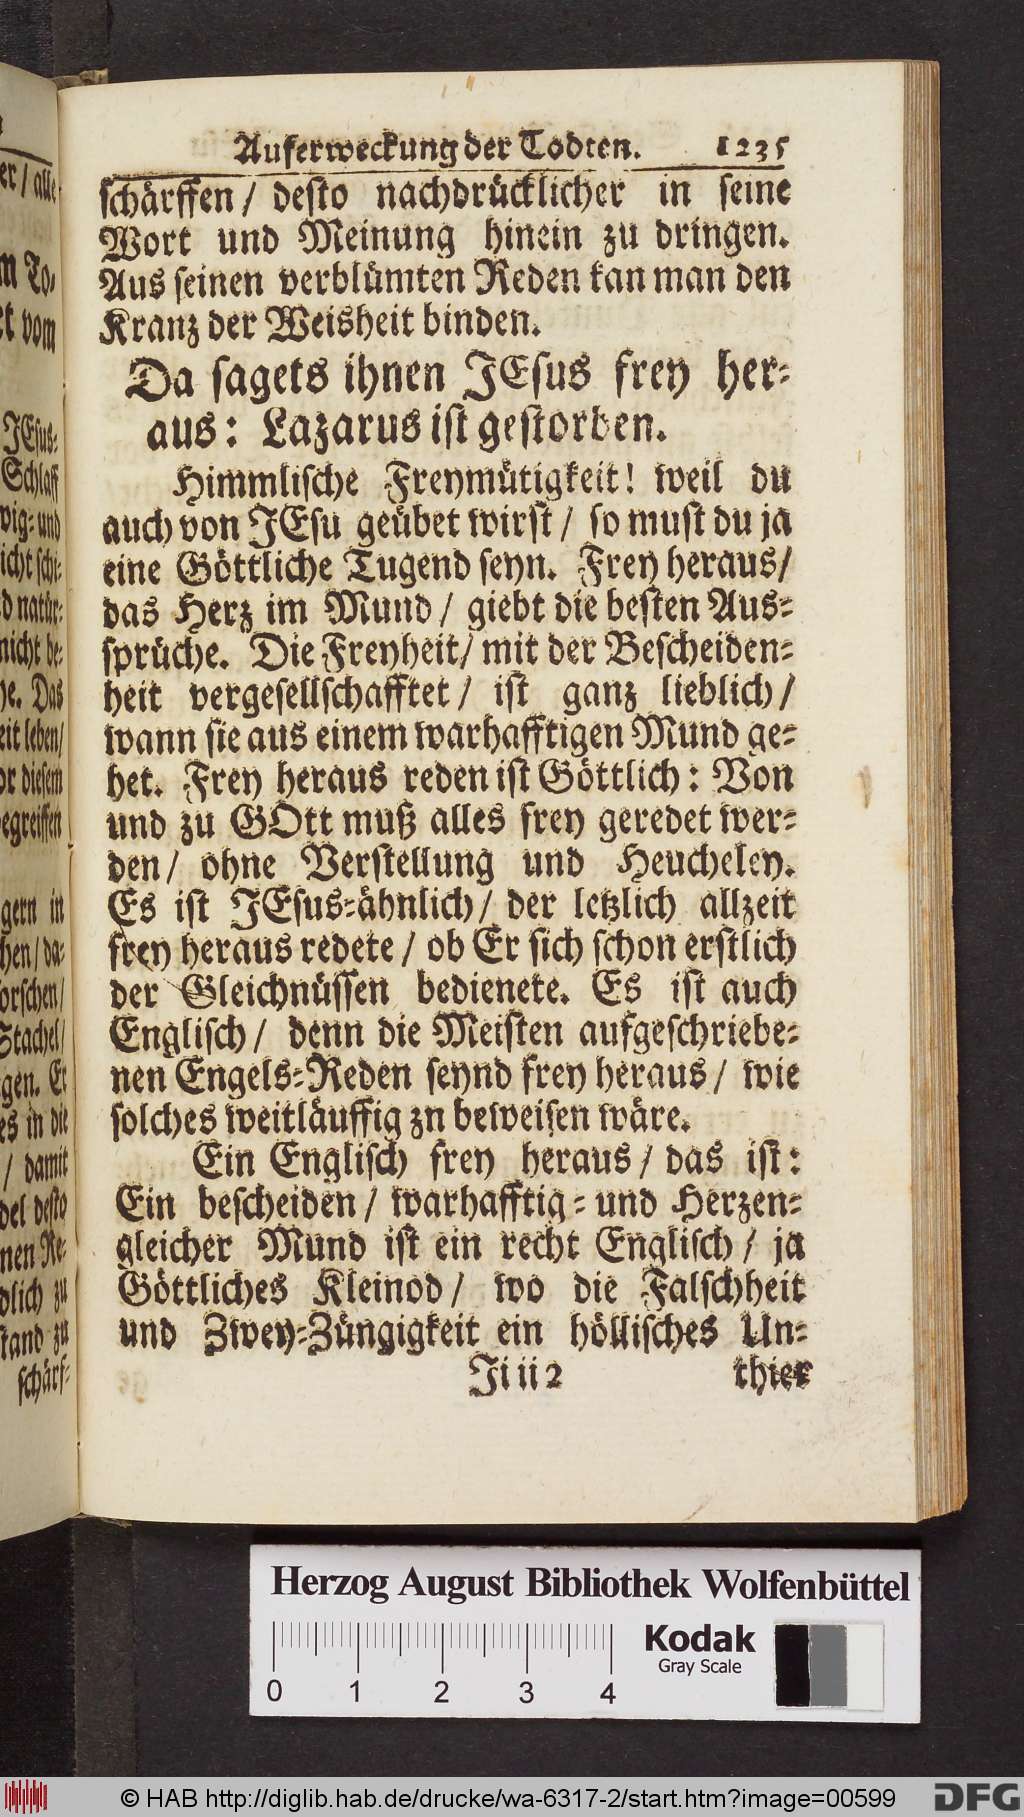 Auferweckung der Todten. 1235
schärffen / desto nachdrücklicher in seine
Wort und Meinung hinein zu dringen.
Aus seinen verblümten Reden kan man den
Kranz der Weisheit binden.
Da sagets ihnen JEsus frey her-
aus: Lazarus ist gestorben.
Himmlische Freymütigkeit! weil du
auch von JEsu geübet wirst / so must du ja
eine Göttliche Tugend seyn. Frey heraus /
das Herz im Mund / giebt die besten Aus-
sprüche. Die Freyheit / mit der Bescheiden-
heit vergesellschafftet / ist ganz lieblich /
wann sie aus einem warhafftigen Mund ge-
het. Frey heraus reden ist Göttlich: Von
und zu GOtt muß alles frey geredet wer-
den / ohne Verstellung und Heucheley.
Es ist JEsus-ähnlich / der letzlich allzeit
frey heraus redete / ob Er sich schon erstlich
der Gleichnüssen bedienete. Es ist auch
Englisch / denn die Meisten aufgeschriebe-
nen Engels-Reden seynd frey heraus / wie
solches weitläuffig zn beweisen wäre.
Ein Englisch frey heraus / das ist:
Ein bescheiden / warhafftig- und Herzen-
gleicher Mund ist ein recht Englisch / ja
Göttliches Kleinod / wo die Falschheit
und Zwey-Züngigkeit ein höllisches Un-
Jiii2 thier
er / alle
m To-
vom
JEsus-
Schlaff
wig- und
icht schi-
d natür-
nicht be-
he. Das
eit leben /
or diesem
egreiffen
gern in
hen / da-
orschen /
Stachel /
gen. Er
es in die
/ damit
del desto
nen Re-
dlich zu
stand zu
schärf-
Herzog August Bibliothek Wolfenbüttel
Kodak
Gray Scale
0 1 2 3 4
© HAB http://diglib.hab.de/drucke/wa-6317-2/start.htm?image=00599
DFG